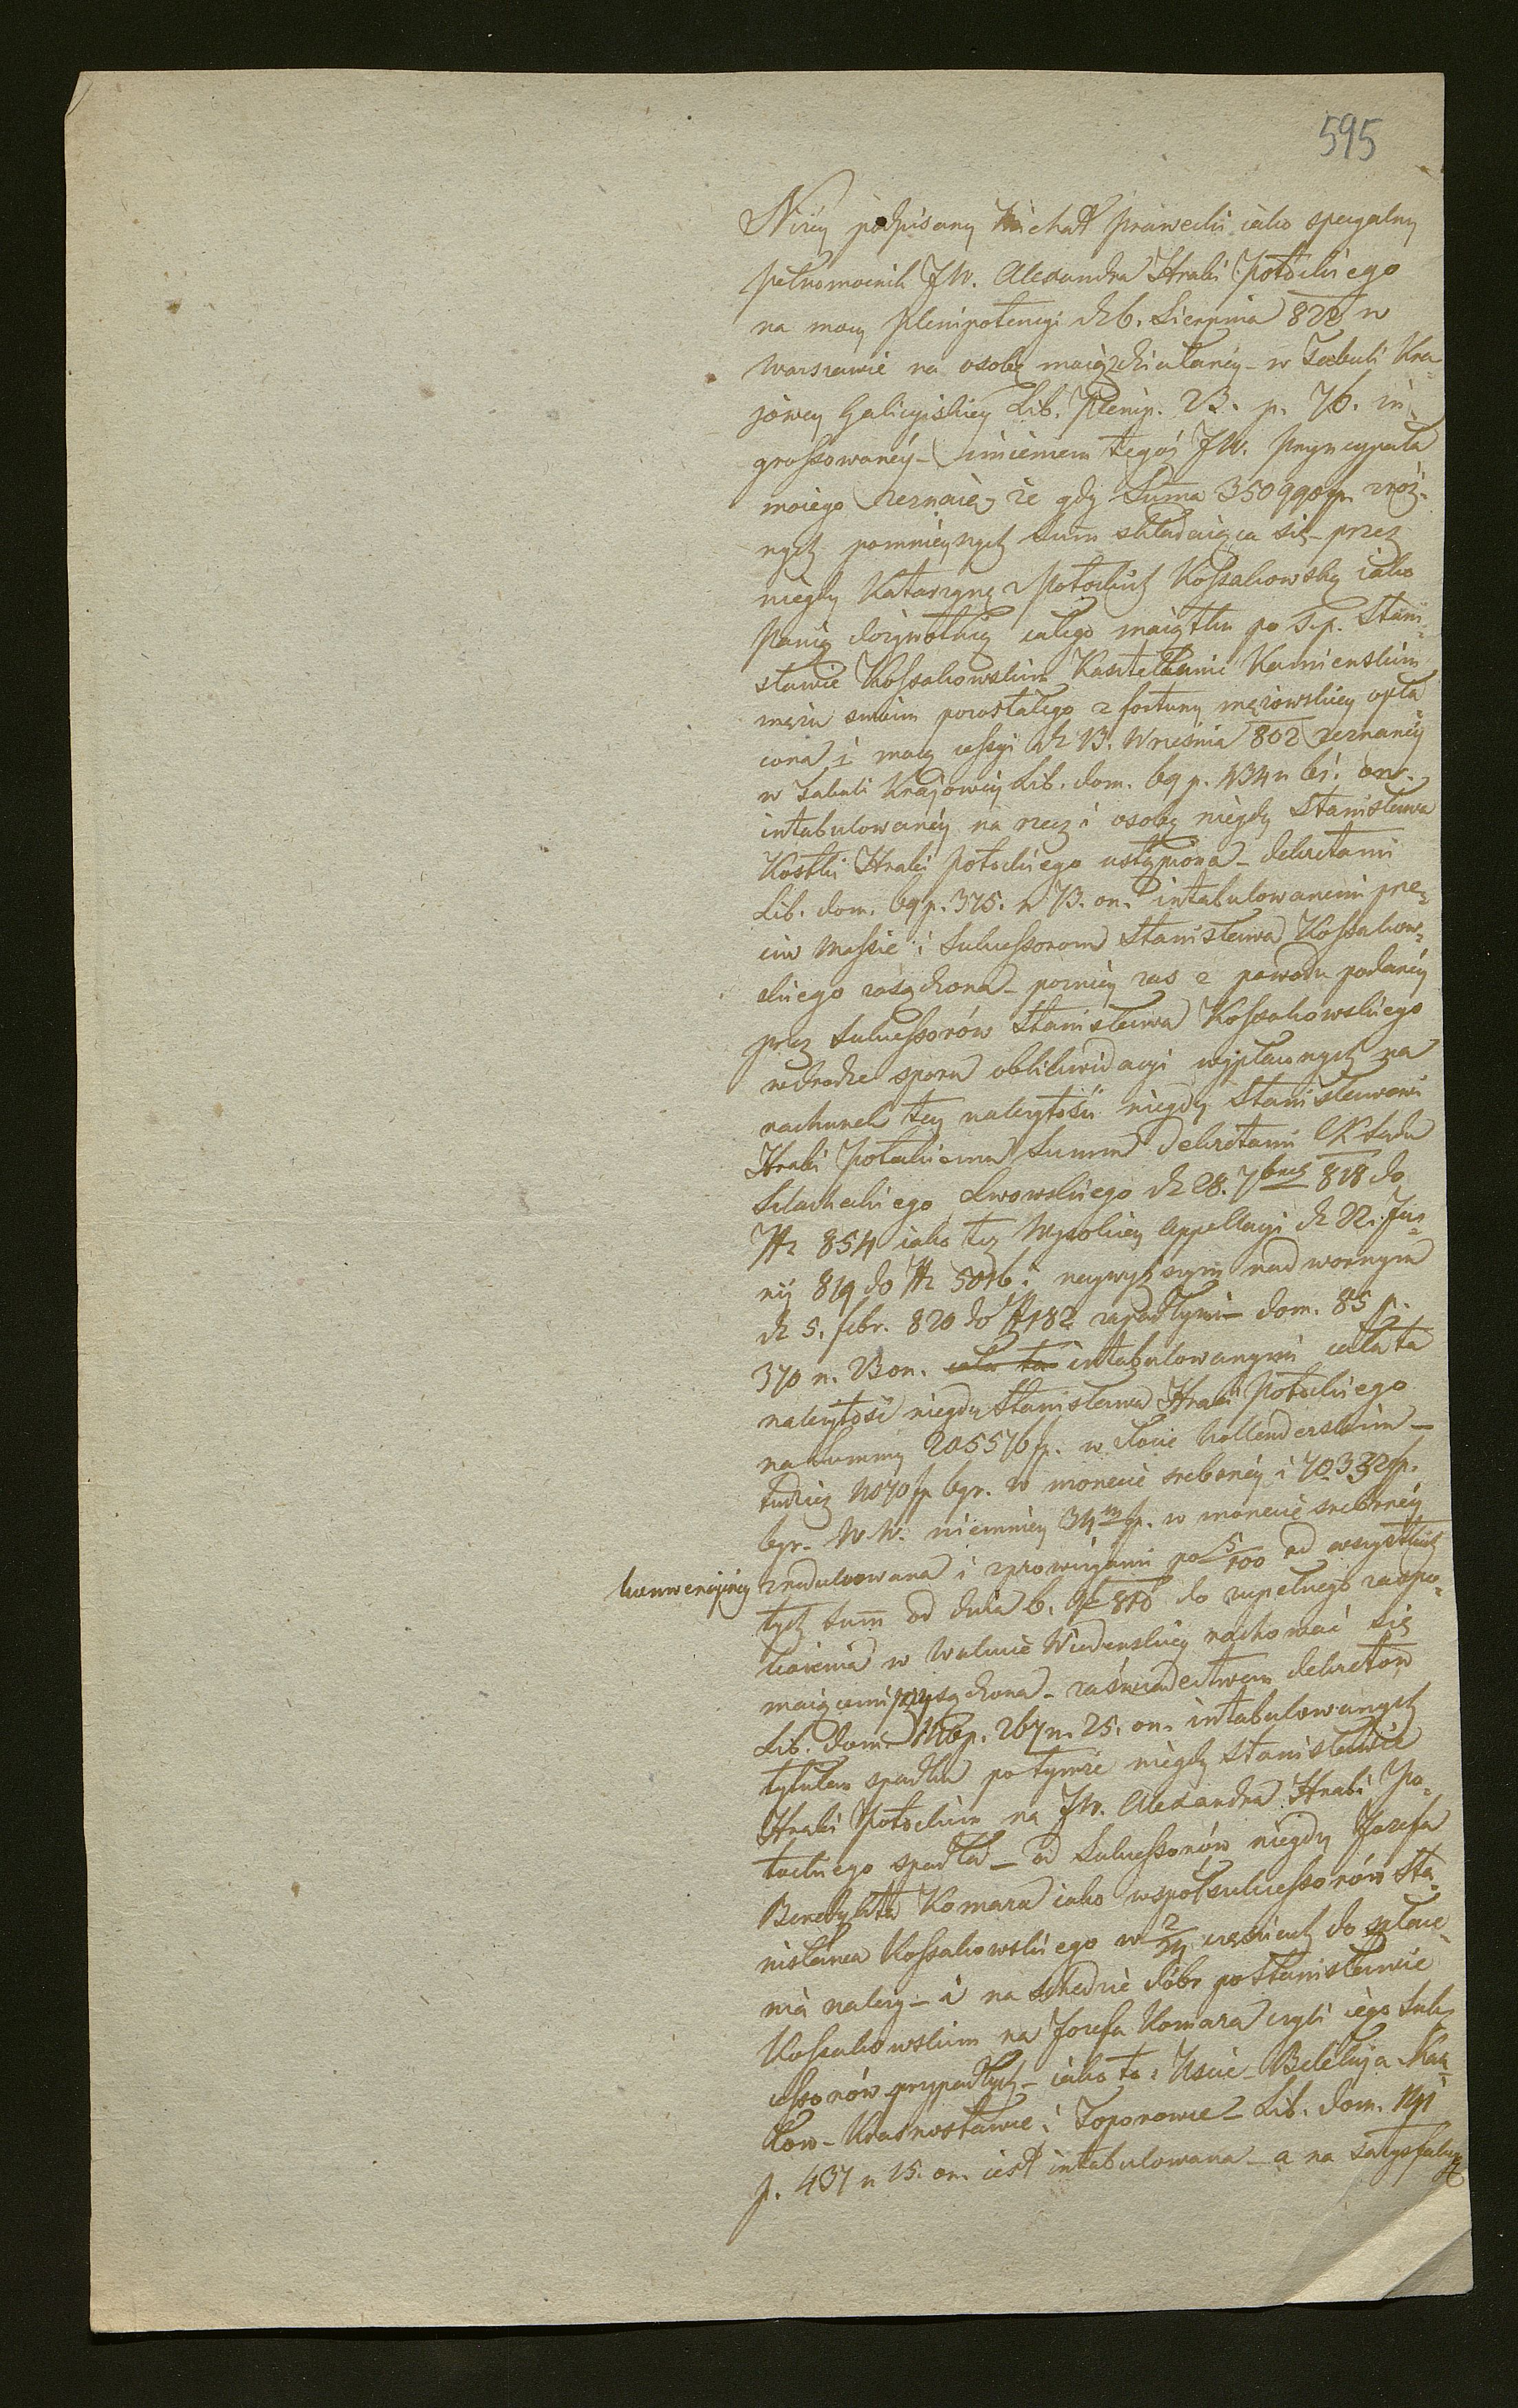 595
Niżey podpisany Michał Prawecki iako specyalny
pełnomocnik JW. Alexandra Hrabi Potockiego
na mocy Plenipotencyi d 6. Sierpnia 822 w
Warszawie na osobę moią zdziałaney – w Tabuli Kra-
jowey Galicyiskiey Lib. Plenip. 23. p. 76. in-
grossowanéy – imieniem tegóż JW. Pryncypała
moiego zeznaię, że gdy Suma 350990 fp. z róż-
nych pomnieyszych Sum składaiąca się – przez
niegdy Katarzynę z Potockich Kossakowską iako
Panią dożywotnią całego maiątku po Ś.p. Stani-
sławie Kossakowskim Kasztelanie Kamienskim
mężu swoim pozostałego z fortuny mężowskiey opła-
cona i mocą cessyi d 13. Września 802 zeznanéy
w Tabuli Krajowéy Lib. dom. 69 p. 434 n 61. on.
intabulowanéy na rzecz i osobę niegdy Stanisława
Kostki Hrabi Potockiego ustąpiona – dekretami
Lib. dom. 69 p. 375. n 73. on. intabulowanemi prze-
ciw Massie i Sukcessorom Stanisława Kossakow-
skiego zasądzona – pozniey zas z powodu podanéy
przez Sukcessorów Stanisława Kossakowskiego
w drodze sporu oblikwidacyi wypłaconych na
rachunek tey należytości niegdy Stanisławowi
Hrabi Potockiemu Summ dekretami CK Sądu
Szlacheckiego Lwowskiego d 28. 7bris 818 do
N 854 iako też Wysokiey Appellacyi d 22. Ju-
nij 819 do N 5046 i naywyższym nadwornym
d 5. febr. 820 do N 182 zapadłymi – dom. 85 p.
370 n. 23 on. cała ta intabulowanymi cała ta
należytość niegdy Stanisława Hrabi Potockiego
na Summy 205576 fp. w złocie hollenderskim –
tudzież 11070 fp 6 gr. w monecie srebrnéy i 70332 fp.
6 gr. W.W. niemniey 34 fp. w monecie srebrnéy
konwencyjnéy zredukowana i z prowizyami po 5/100 od wszystkich
tych Sum od dnia 6. 810 do zupełnego zaspo-
koienia w Walucie Wiedenskiey rachować się
maiącemi przysądzona – zaświadectwem dekretów
Lib. dom. p. 267 n. 25. on. intabulowanych
tytułem spadku po tymże niegdy Stanisławie
Hrabi Potockim na JW. Alexandra Hrabi Po-
tockiego spadła – od Sukcessorów niegdy Jozefa
Benedykta Komara iako współsukcessorów Sta-
nisława Kossakowskiego w 2/24 częściach do zpłace-
nia należy – i na Schedzie dóbr po Stanisławie
Kossakowskim na Jozefa Komara czyli iego Suk-
cessorów przypadłych – iako to: Uście – Beleluja –
– Krasnostawce i Toporowce – Lib. dom. 141
p. 437 n 15. on. iest intabulowana – a na satysfakcyą